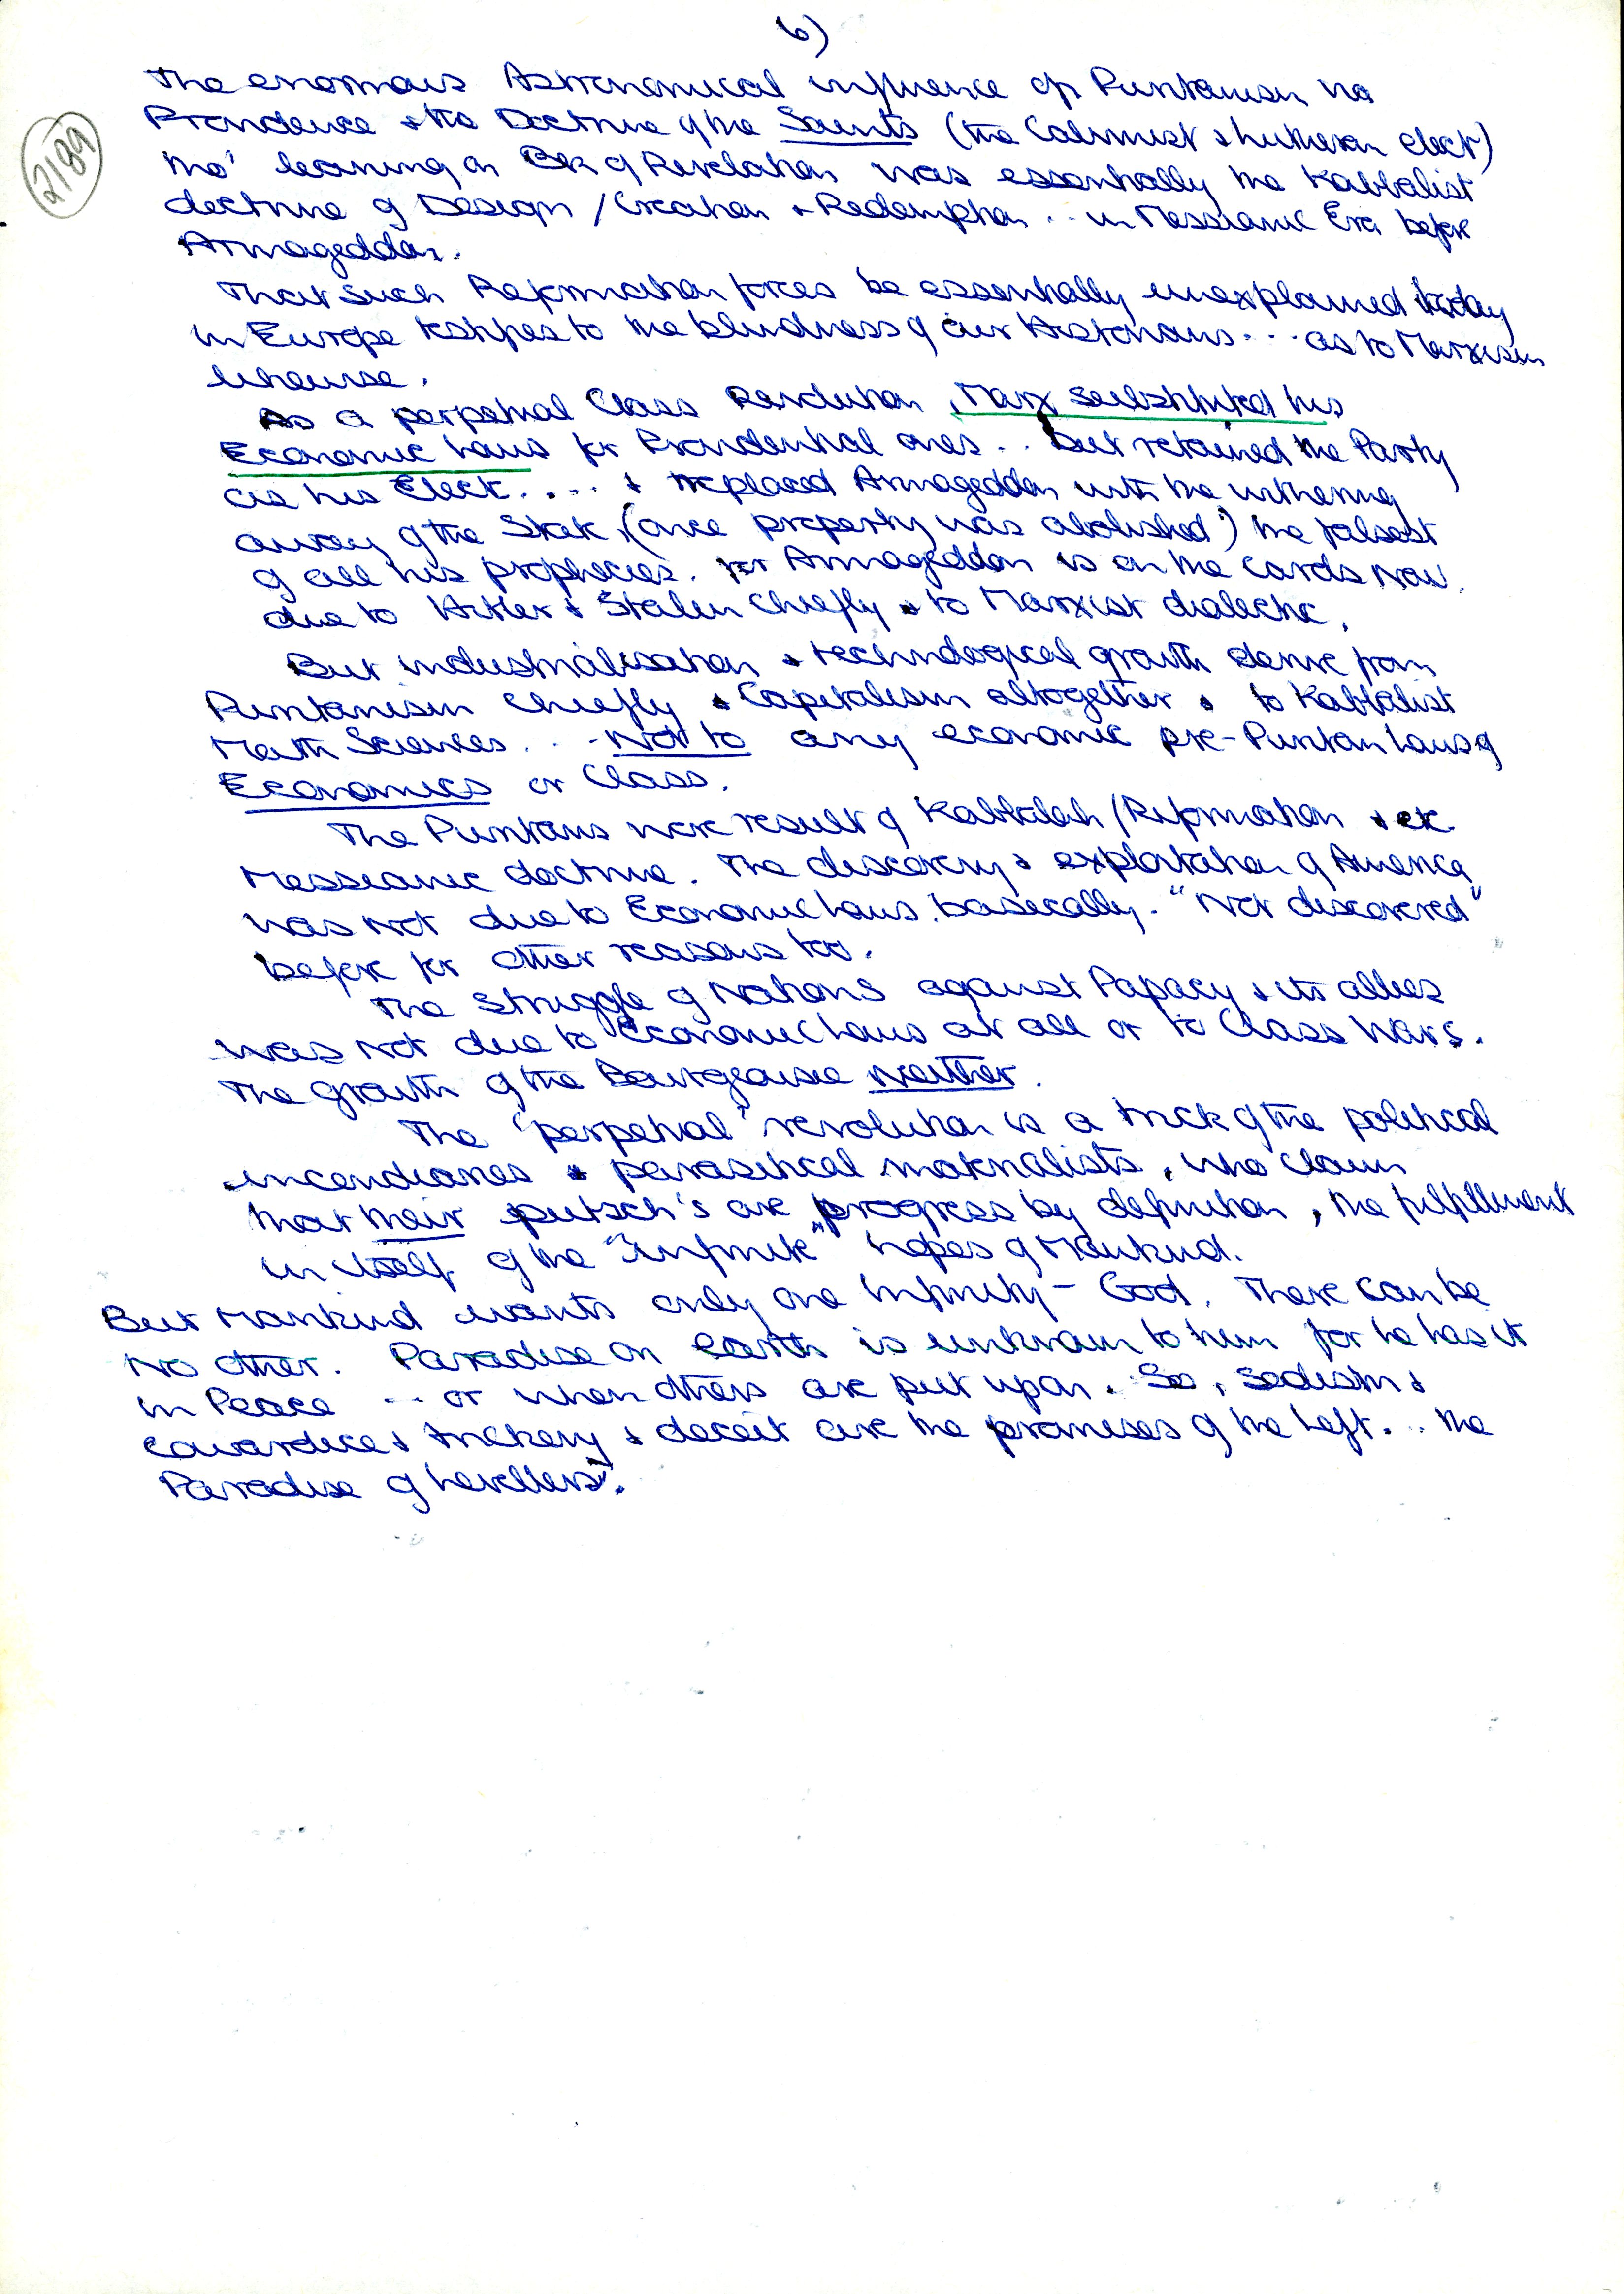 6)
2189
The enormous Astronomical influence of Puritanism via
Providence & the Doctrine of the Saints (the Calvinist & Lutheran elect)
tho' leaning on Bk of Revelation was essentially the Kabbalist
doctrine of Design / Creation & Redemption .. in Messianic Era before
Armageddon.
That such Reformation forces be essentially unexplained today
in Europe testifies to the blindness of our Historians... as to Marxism
likewise.
As a perpetual Class Revolution, Marx substituted his
Economic Laws for Providential ones .. but retained the Party
as his Elect.... & replaced Armageddon with the withering
away of the State, (once property was abolished') the falsest
of all his prophecies. For Armageddon is on the cards now.
due to Hitler & Stalin chiefly & to Marxist dialectic.
But industrialisation & technological growth derive from
Puritanism chiefly & Capitalism altogether & to Kabbalist
Math Sciences... Not to any economic pre-Puritan laws of
Economics or Class.
The Puritans were result of Kabbalah / Reformation & etc.
Messianic doctrine. The discovery & exploitation of America
was not due to Economic laws. basically. "Not discovered"
before for other reasons too.
The struggle of Nations against Papacy & its allies
was not due to Economic laws at all or to Class Wars.
The growth of the Bourgeoisie neither.
The 'perpetual' revolution is a trick of the political
incendiaries & parasitical materialists, who claim
that their putsch's are progress by definition, the fulfillment
in itself of the "infinite" hopes of Mankind.
But Mankind wants only one Infinity - God. There can be
no other. Paradise on earth is unknown to him for he has it
in Peace ... or when others are put upon. So, sadism &
cowardice & trickery & deceit are the promises of the Left... the
Paradise of Levellers.